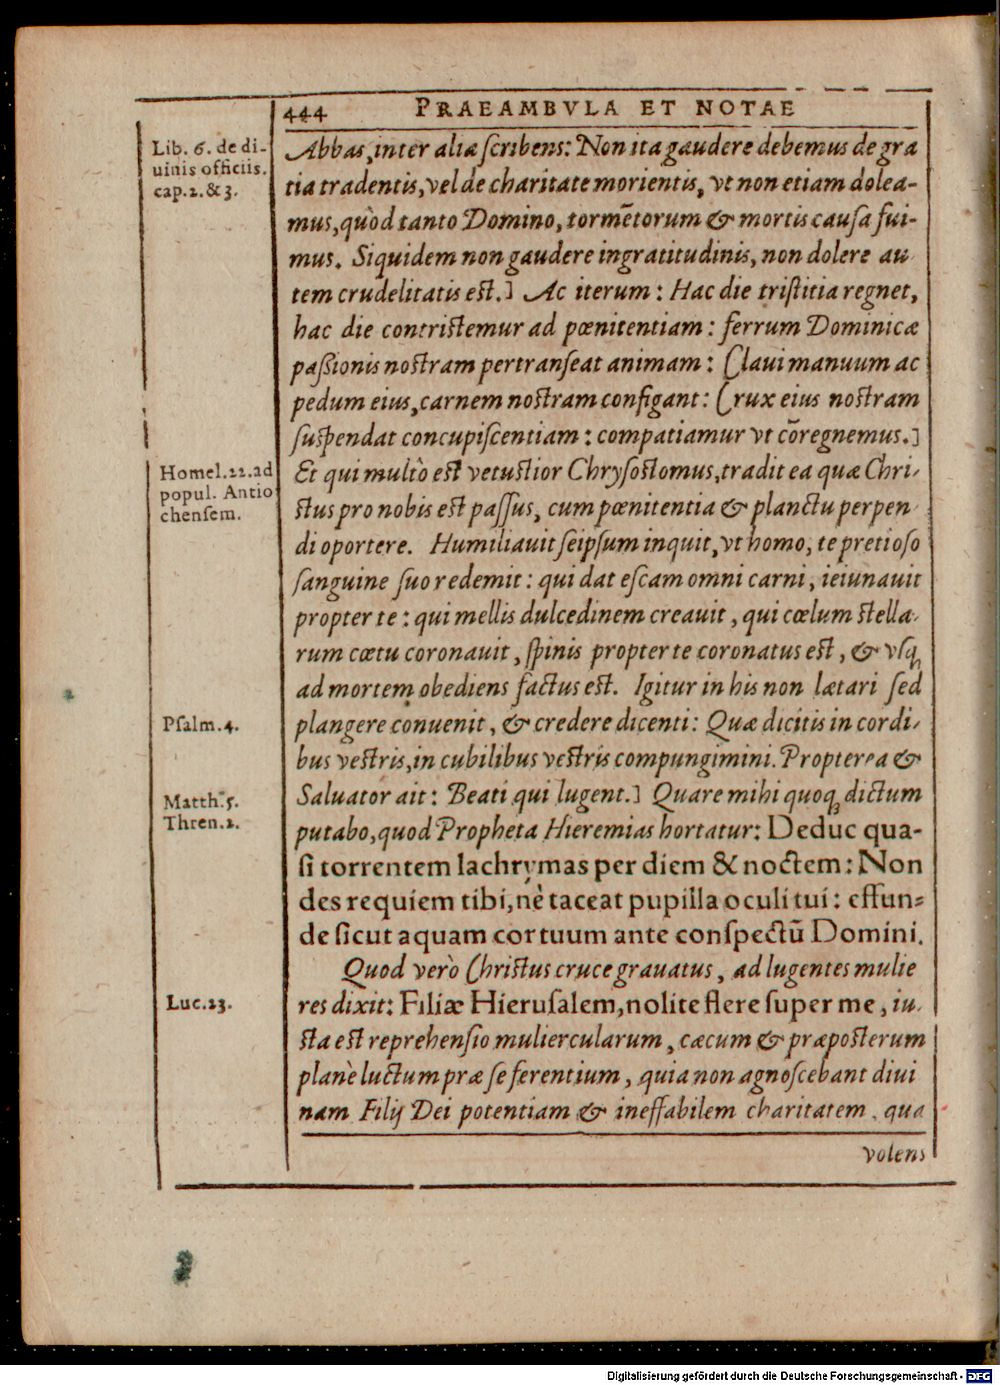 444 PRAEAMBVLA ET NOTAE
Lib. 6. de di-
uinis officiis.
cap.2. & 3.
Abbas, inter alia ſcribens: Non ita gaudere debemus de gra
tia tradentis, vel de charitate morientis, vt non etiam dolea-
mus, quòd tanto Domino, tormētorum & mortis cauſa fui-
mus. Siquidem non gaudere ingratitudinis, non dolere au
tem crudelitatis est.] Ac iterum: Hac die tristitia regnet,
hac die contristemur ad pœnitentiam: ferrum Dominicæ
paßionis nostram pertranſeat animam: Claui manuum ac
pedum eius, carnem nostram configant: Crux eius nostram
ſuſpendat concupiſcentiam: compatiamur vt cōregnemus.]
Homel.22.ad
popul. Antio
chenſem.
Et qui multò est vetustior Chryſostomus, tradit ea quæ Chri-
stus pro nobis est paſſus, cum pœnitentia & planctu perpen
di oportere. Humiliauit ſeipſum inquit, vt homo, te pretioſo
ſanguine ſuo redemit: qui dat eſcam omni carni, ieiunauit
propter te: qui mellis dulcedinem creauit, qui cœlum stella-
rum cœtu coronauit, ſpinis propter te coronatus est, & vſq;
ad mortem obediens factus est. Igitur in his non lætari ſed
Pſalm.4.
plangere conuenit, & credere dicenti: Quæ dicitis in cordi-
bus vestris, in cubilibus vestris compungimini. Propterea &
Matth.5.
Thren.2.
Saluator ait: Beati qui lugent.] Quare mihi quoq; dictum
putabo, quod Propheta Hieremias hortatur: Deduc qua-
ſi torrentem lachrymas per diem & noctem: Non
des requiem tibi, nè taceat pupilla oculi tui: effun-
de ſicut aquam cor tuum ante conſpectū Domini.
Quod verò Christus cruce grauatus, ad lugentes mulie
Luc.23.
res dixit: Filiæ Hieruſalem, nolite flere ſuper me, iu-
sta est reprehenſio muliercularum, cæcum & præposterum
planè luctum præ ſe ferentium, quia non agnoſcebant diui
nam Filij Dei potentiam & ineffabilem charitatem, qua
volens
Digitalisierung gefördert durch die Deutsche Forschungsgemeinschaft - DFG